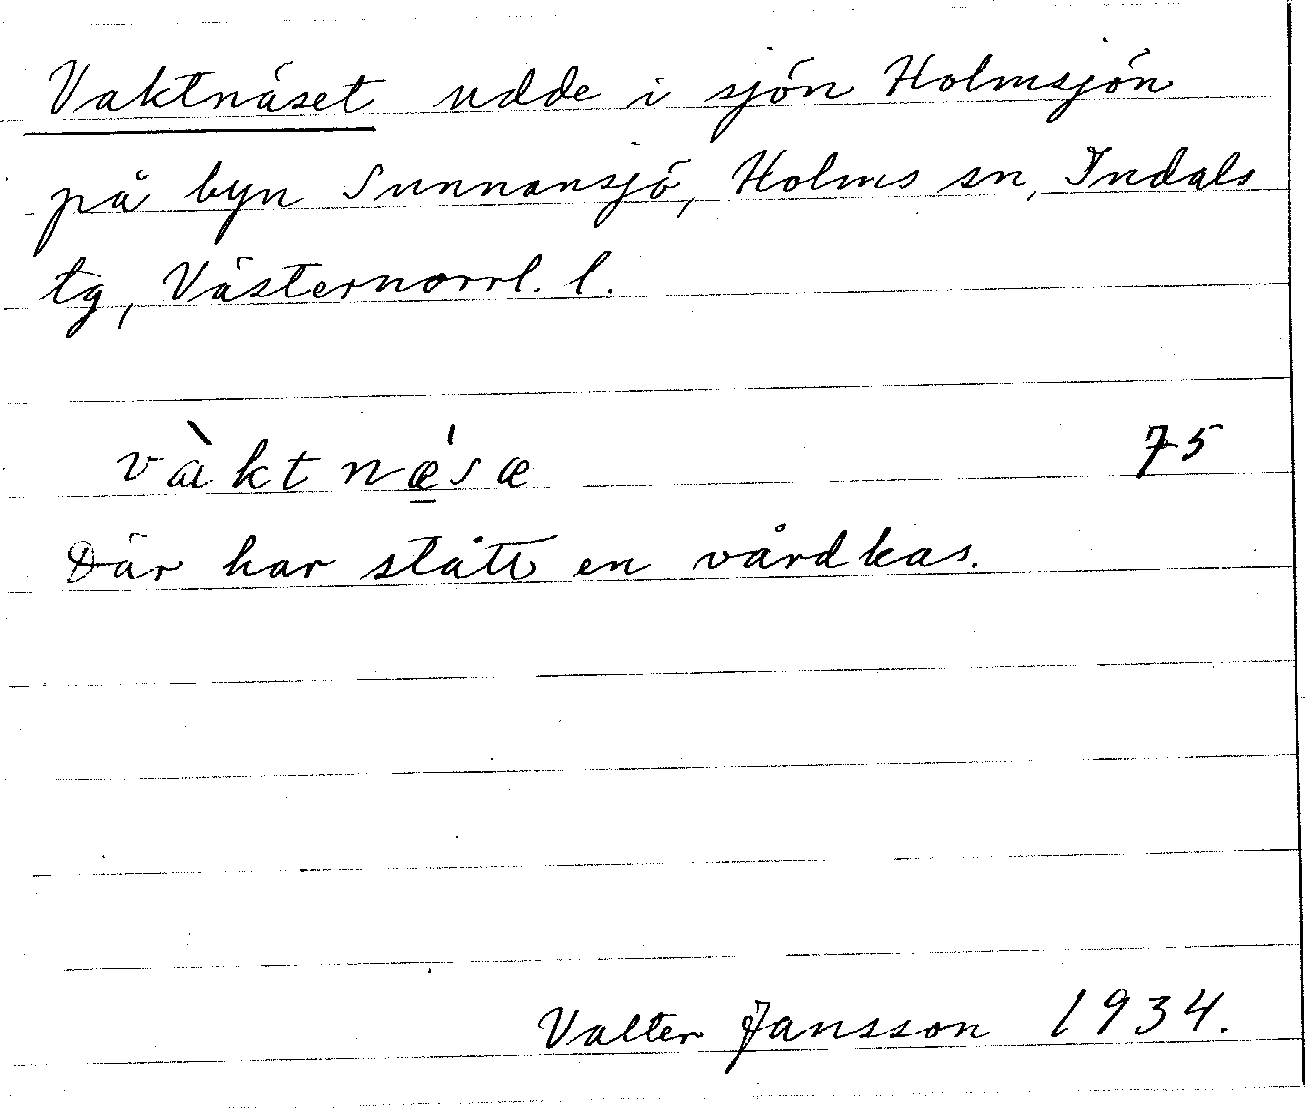 Vaktnäset udde i sjön Holmsjön
på byn Sunnansjö, Holms sn, Indals
tg, Västernorrl. l.
vàktnǽ̱sæ 75
Där har stått en vårdkas.
Valter Jansson 1934.